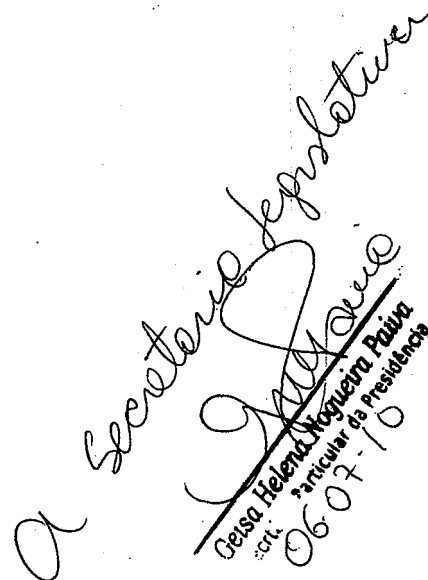 a Secretaria Legislativa
Geisa Helena Nogueira Paiva
Particular da Presidência
06-07-10